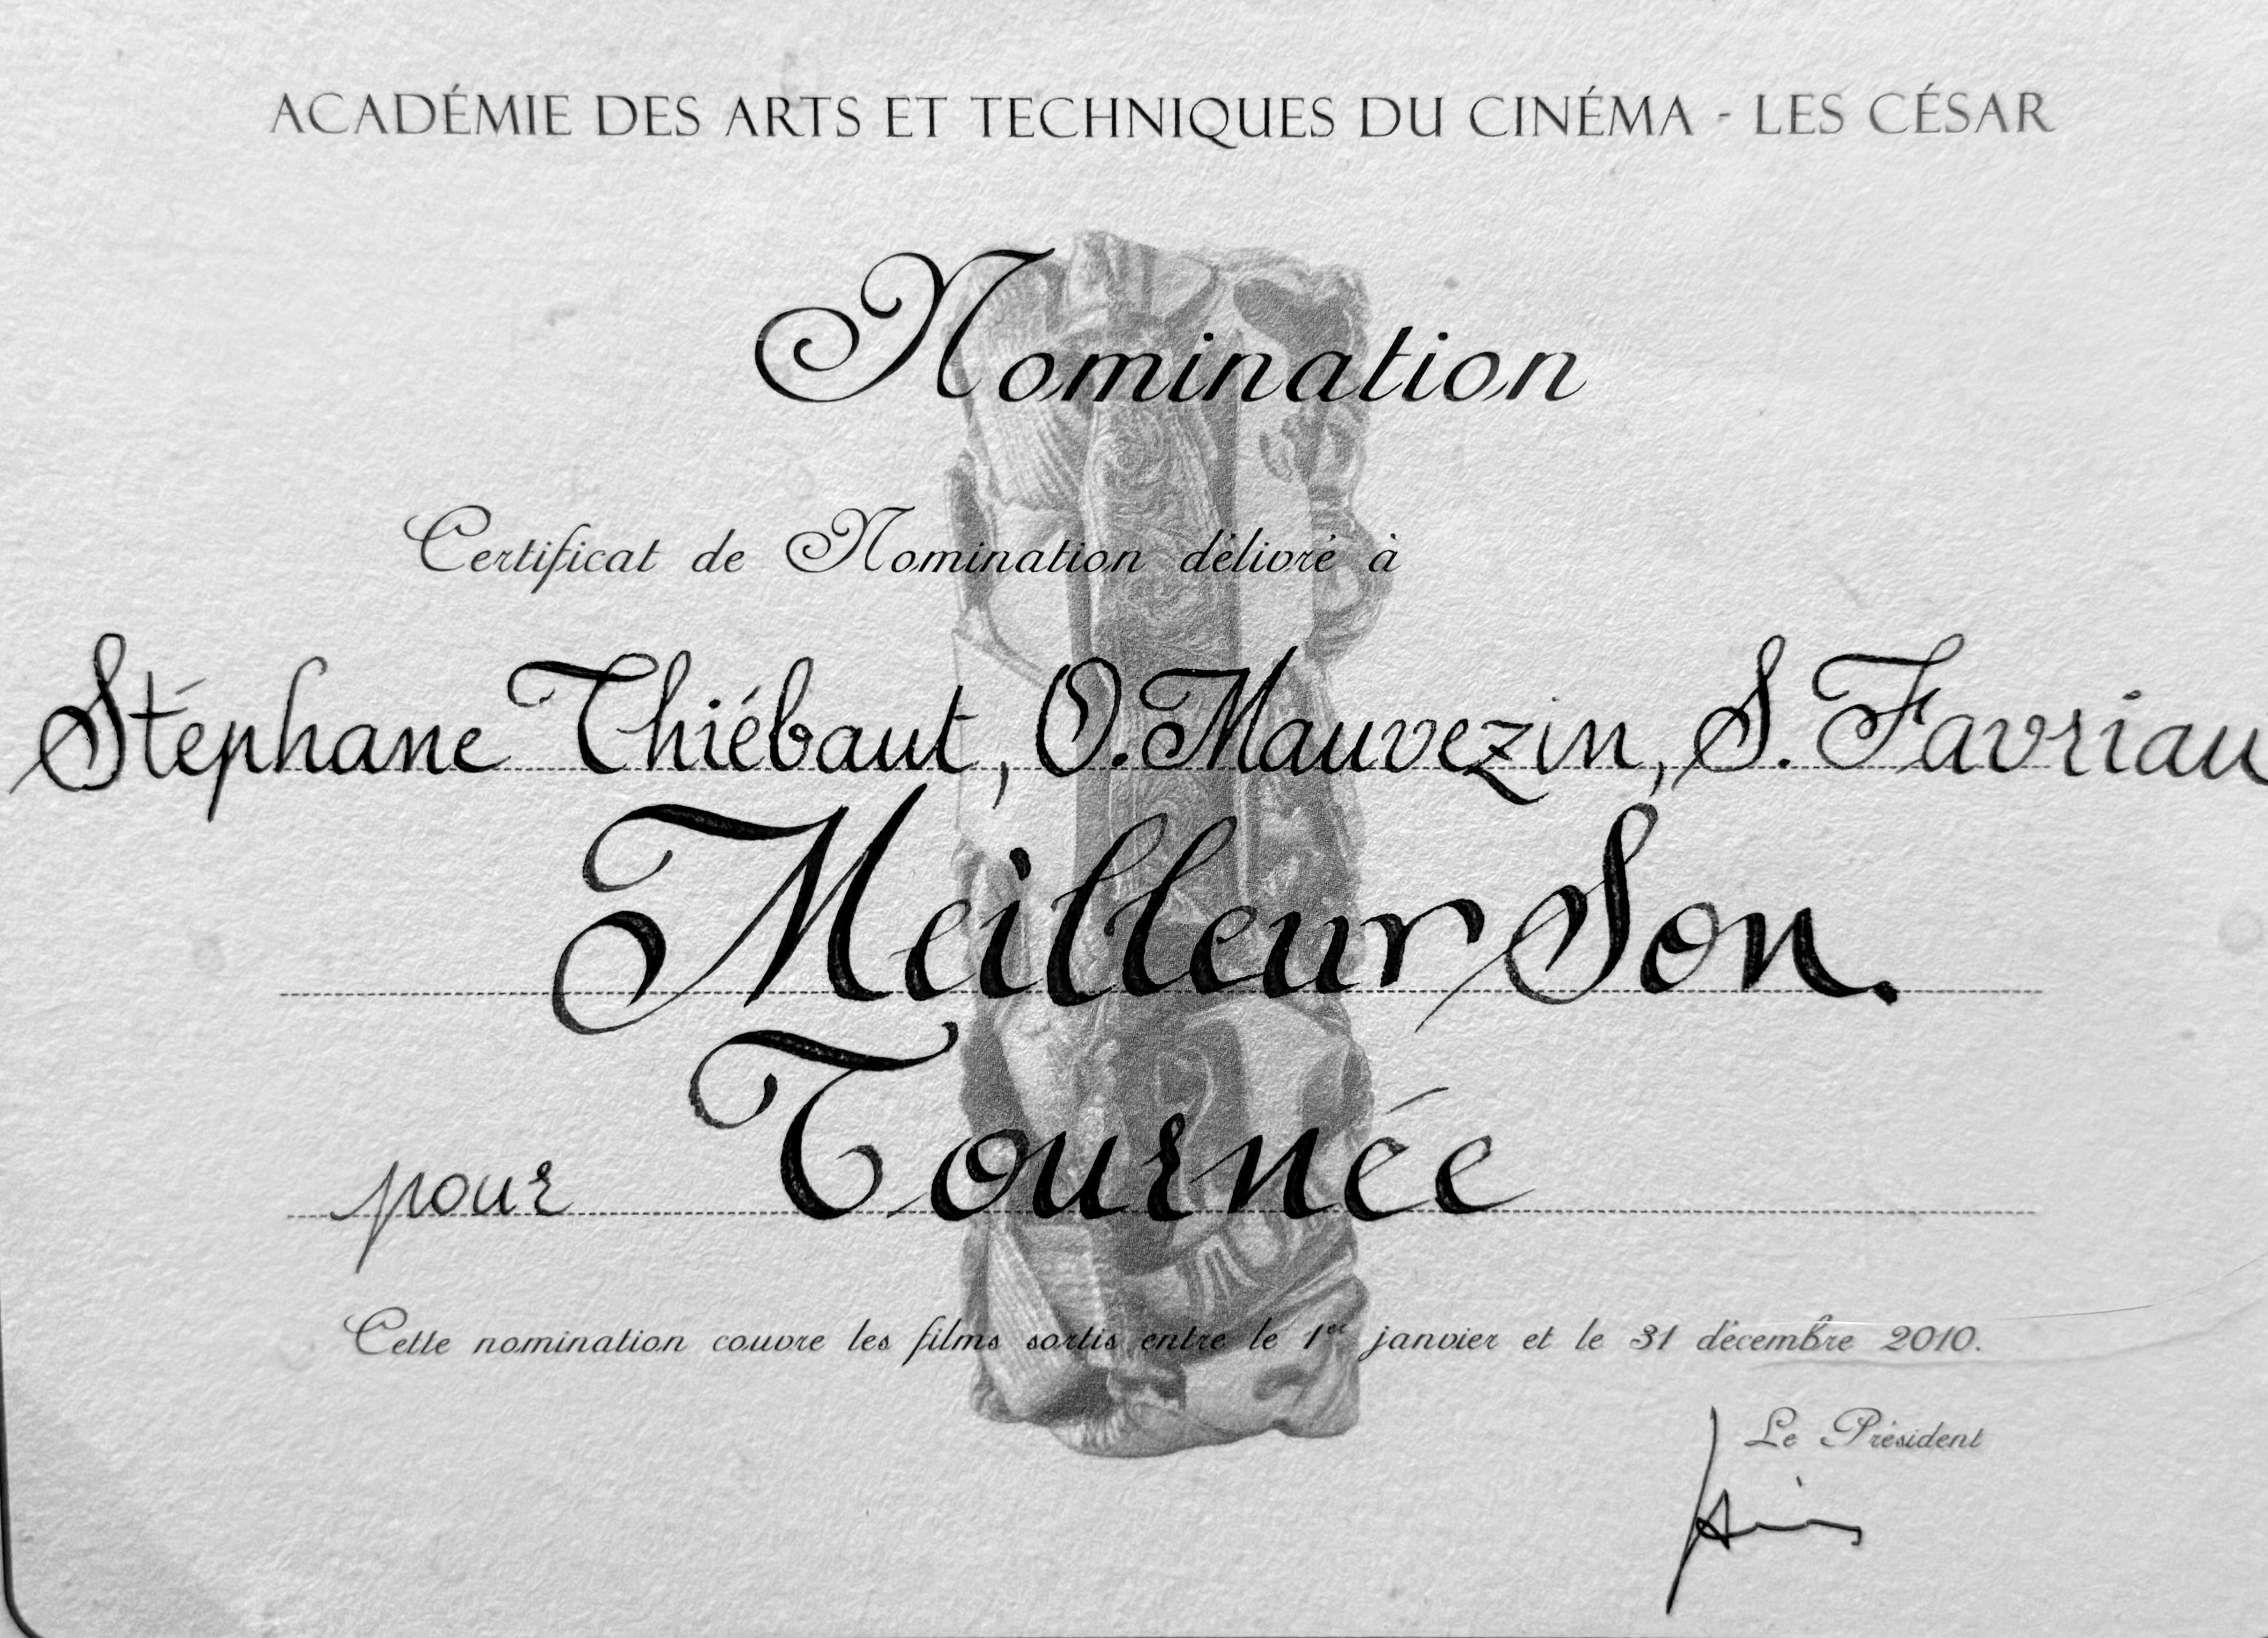 ACADÉMIE DES ARTS ET TECHNIQUES DU CINÉMA - LES CÉSAR
Nomination
Certificat de Nomination délivré à
Stéphane Thiébaut, O. Mauvezin, S. Favriau
Meilleur Son.
pour Tournée
Cette nomination couvre les films sortis entre le 1er janvier et le 31 décembre 2010.
Le Président